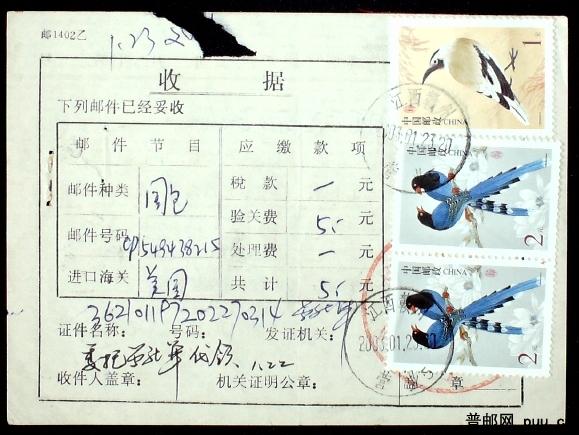 邮1402乙
1.23
收 据
下列邮件已经妥收
邮 件 节 目 应 缴 款 项
邮件种类 国包 税 款 一 元
验关费 5.- 元
邮件号码 CP549438215
处理费 一 元
进口海关 美国 共 计 5.- 元
证件名称： 号码： 发证机关：
代领 1.22
收件人盖章： 机关证明公章： 章：
1元
中国邮政 CHINA
江西
2003.01.23.20
2元
中国邮政 CHINA
2元
中国邮政 CHINA
江西
2003.01.23
普邮网 puu.c